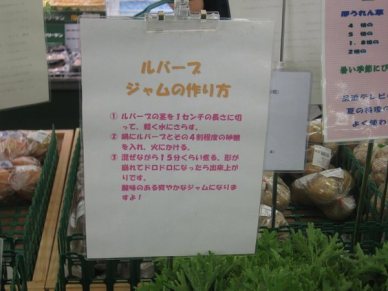 ルバーブ
ジャムの作り方
① ルバーブの茎を1センチの長さに切
って、軽く水にさらす。
② 鍋にルバーブとその4割程度の砂糖
を入れ、火にかける。
③ 混ぜながら15分くらい煮る。形が
崩れてドロドロになったら出来上が
りです。
酸味のある爽やかなジャムになりま
すよ！
ほうれん草
4 倍の
5 倍の
1.8倍の
2倍の
暑い季節にぴ